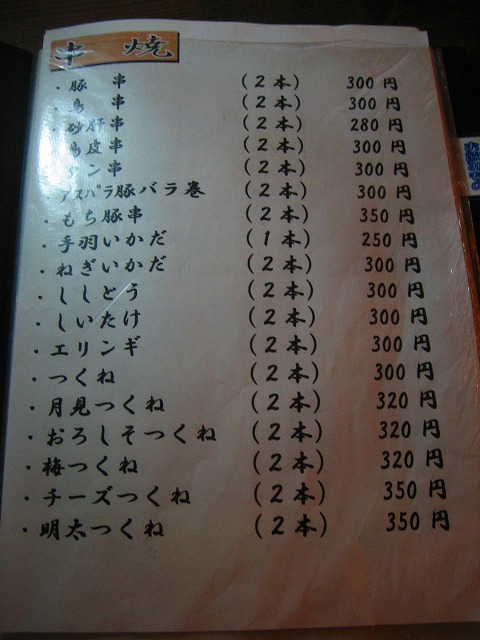 串焼
・豚串 (2本) 300円
鳥串 (2本) 300円
・砂肝串 (2本) 280円
鳥皮串 (2本) 300円
タン串 (2本) 300円
アスパラ豚バラ巻 (2本) 300円
・もち豚串 (2本) 350円
・手羽いかだ (1本) 250円
・ねぎいかだ (2本) 300円
・ししとう (2本) 300円
・しいたけ (2本) 300円
・エリンギ (2本) 300円
・つくね (2本) 300円
・月見つくね (2本) 320円
・おろしそつくね (2本) 320円
・梅つくね (2本) 320円
・チーズつくね (2本) 350円
・明太つくね (2本) 350円